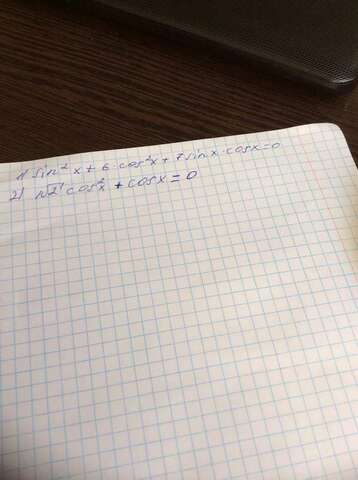 1) sin² x + 6 cos² x + 7 sin x · cos x = 0
2) √2 cos² x + cos x = 0